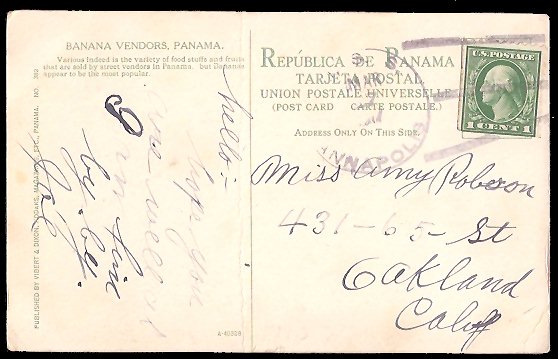 BANANA VENDORS, PANAMA.
Various indeed is the variety of food stuffs and fruits
that are sold by street venders in Panama, but Bananas
appear to be the most popular.
PUBLISHED BY VIBERT & DIXON, CIGARS, MAGAZINES, ETC., PANAMA. NO. 302
hello:-
hope you
are well as
I am fine
by by.
Joe
REPÚBLICA DE PANAMA
TARJETA POSTAL
UNION POSTALE UNIVERSELLE
(POST CARD CARTE POSTALE.)
ADDRESS ONLY ON THIS SIDE.
ANNAPOLIS
MAR
U.S. POSTAGE
1 CENT 1
Miss Amy Roberson
431-65- St
Oakland
Calif
A-40328